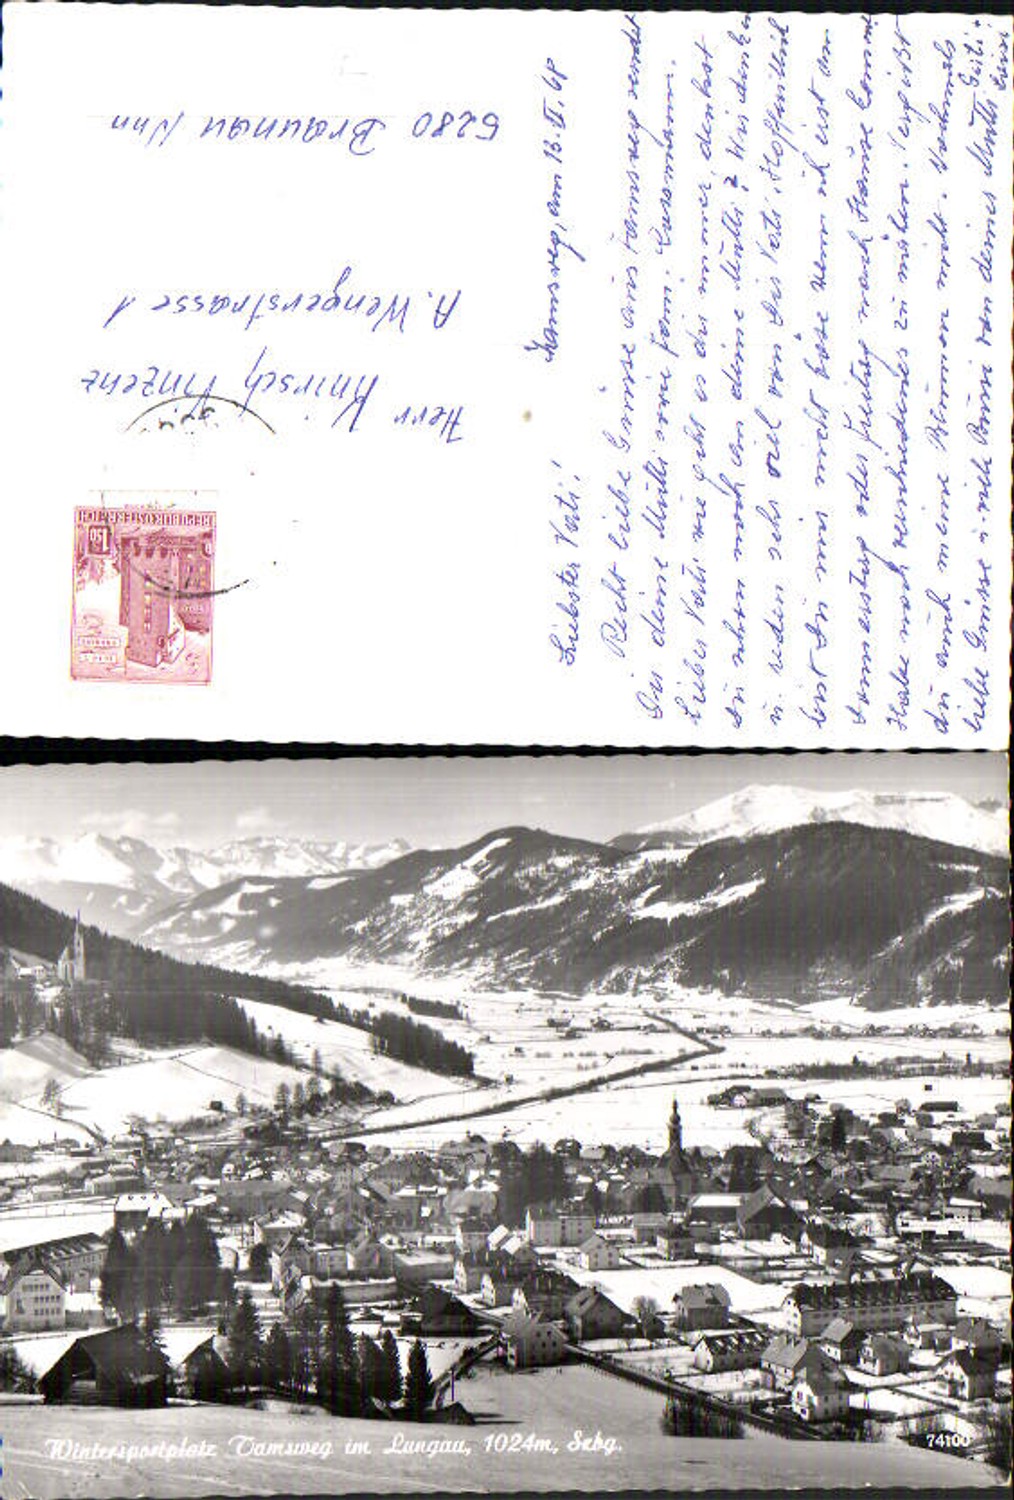 Tamsweg, am 13.II.68
Liebster Vati!
Recht liebe Grüsse aus Tamsweg sendet
Dir deine Mutti sowie Fam.
Lieber Vati wie geht es dir immer, denkst
du schon noch an deine Mutti? Wir denken
u. reden sehr viel von dir Vati. Hoffentlich
bist du mir nicht böse wenn ich erst am
Donnerstag oder Freitag nach Hause komme
Habe noch verschiedenes zu nähen. Vergißt
du auch meine Blumen nicht. Nochmals
liebe Grüsse u. viele Bussi von deiner Mutti
Herr Knirsch Vinzenz
A. Wengerstrasse 1
5280 Braunau Inn
REPUBLIK ÖSTERREICH
1.50
Wintersportplatz Tamsweg im Lungau, 1024m, Szbg.
74100